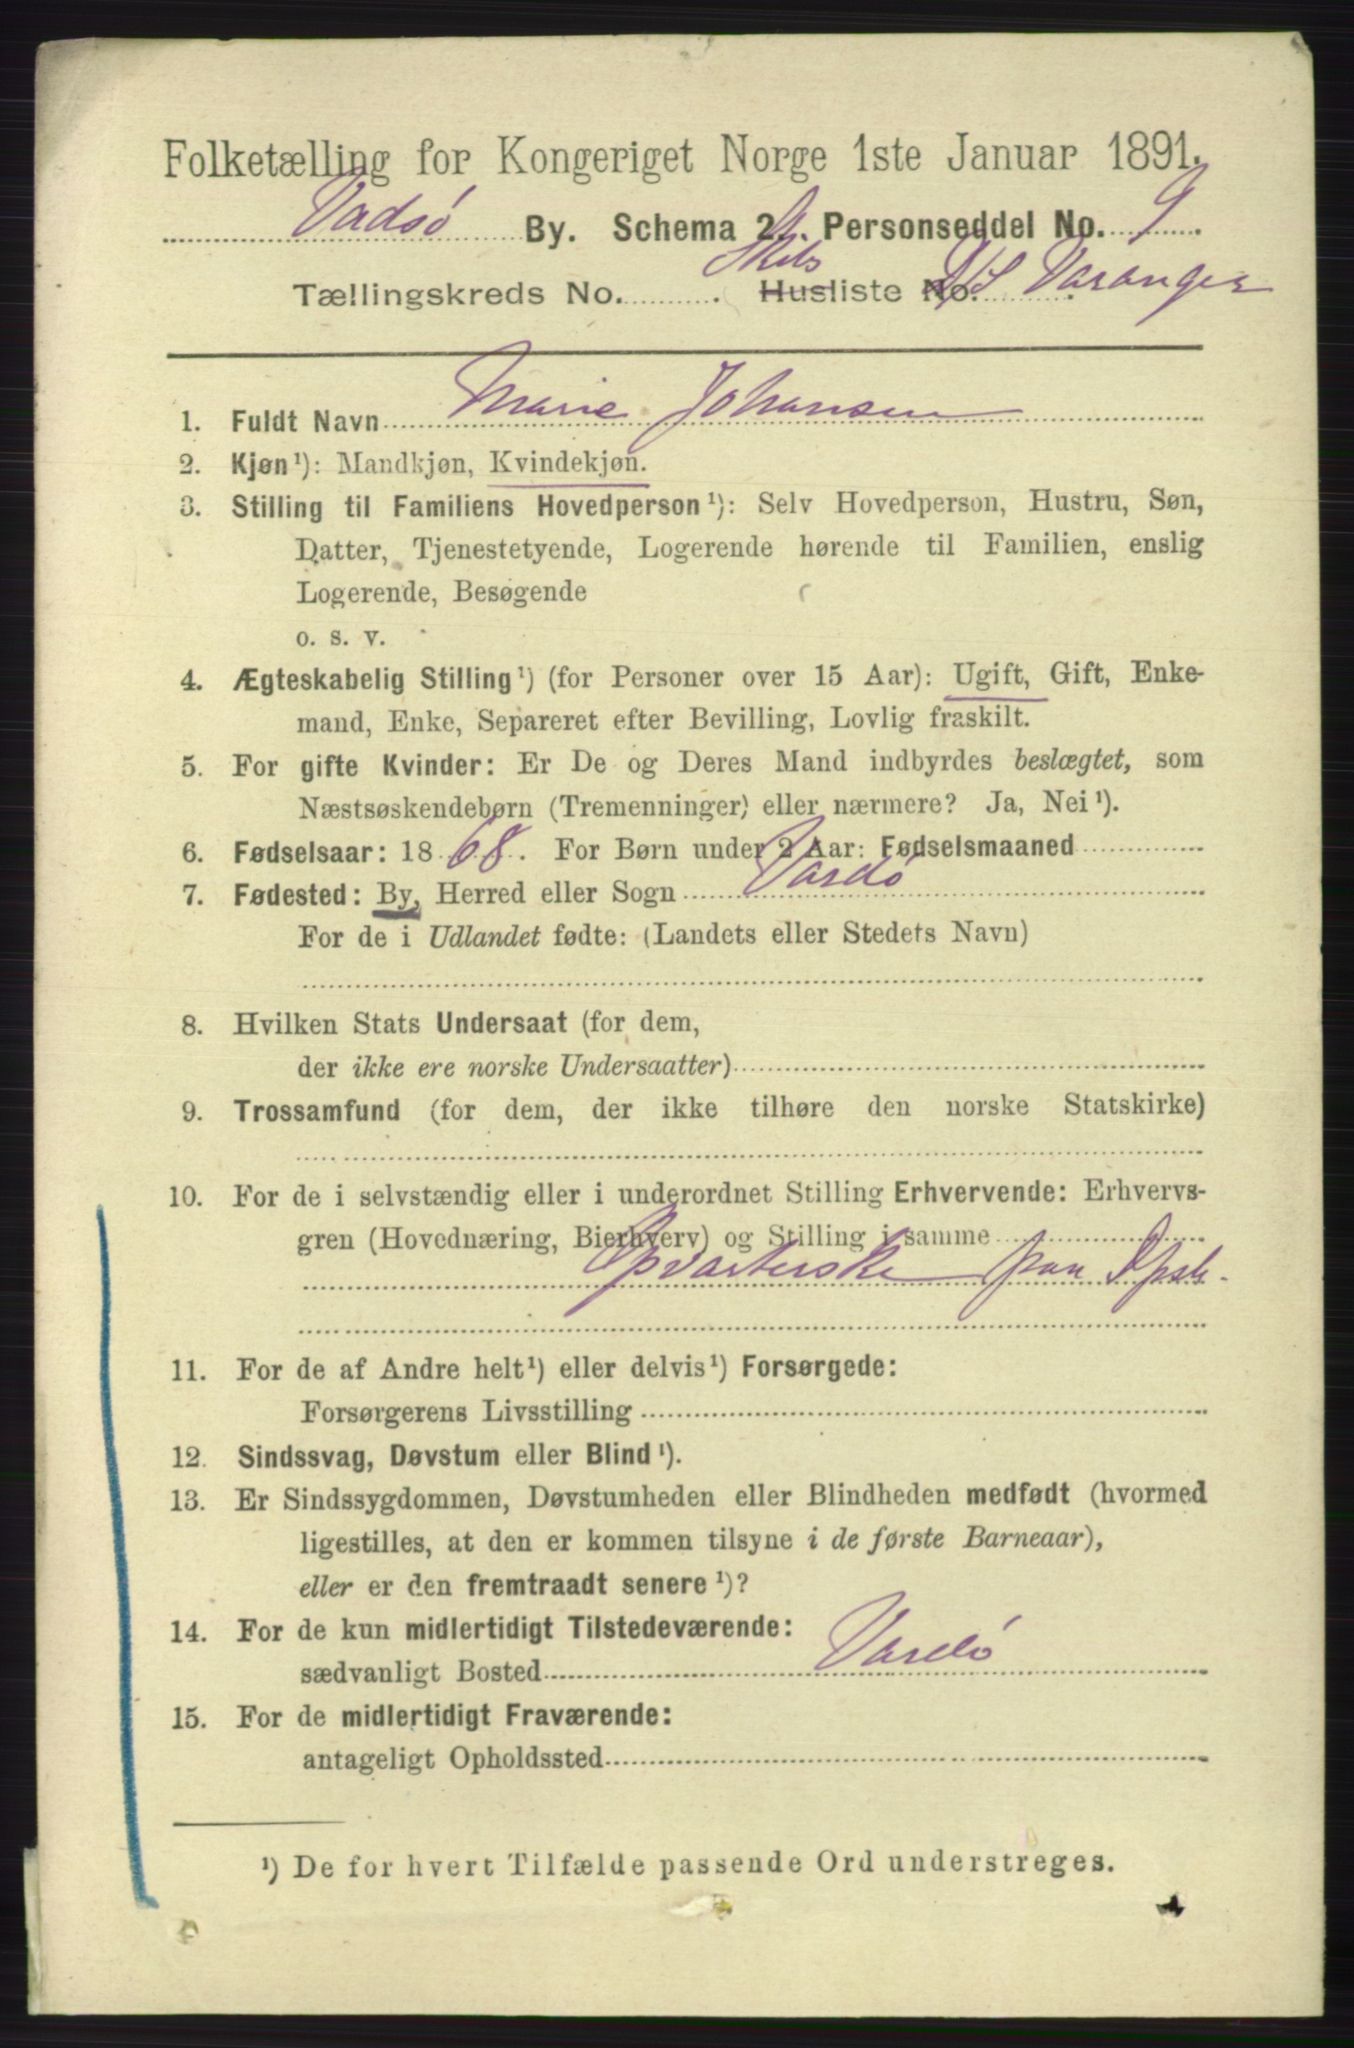 Folketælling for Kongeriget Norge 1ste Januar 1891.
Vadsø By. Schema 2. Personseddel No. 9
Tællingskreds No. . Skibs Husliste No. D/S Varanger
1. Fuldt Navn Marie Johansen
2. Kjøn¹): Mandkjøn, Kvindekjøn.
3. Stilling til Familiens Hovedperson¹): Selv Hovedperson, Hustru, Søn,
Datter, Tjenestetyende, Logerende hørende til Familien, enslig
Logerende, Besøgende
o. s. v.
4. Ægteskabelig Stilling¹) (for Personer over 15 Aar): Ugift, Gift, Enke-
mand, Enke, Separeret efter Bevilling, Lovlig fraskilt.
5. For gifte Kvinder: Er De og Deres Mand indbyrdes beslægtet, som
Næstsøskendebørn (Tremenninger) eller nærmere? Ja, Nei¹).
6. Fødselsaar: 1868. For Børn under 2 Aar: Fødselsmaaned
7. Fødested: By, Herred eller Sogn Vardø
For de i Udlandet fødte: (Landets eller Stedets Navn)
8. Hvilken Stats Undersaat (for dem,
der ikke ere norske Undersaatter)
9. Trossamfund (for dem, der ikke tilhøre den norske Statskirke)
10. For de i selvstændig eller i underordnet Stilling Erhvervende: Erhvervs-
gren (Hovednæring, Bierhverv) og Stilling i samme
Opvarterske paa Dpsk.
11. For de af Andre helt¹) eller delvis¹) Forsørgede:
Forsørgerens Livsstilling
12. Sindssvag, Døvstum eller Blind¹).
13. Er Sindssygdommen, Døvstumheden eller Blindheden medfødt (hvormed
ligestilles, at den er kommen tilsyne i de første Barneaar),
eller er den fremtraadt senere¹)?
14. For de kun midlertidigt Tilstedeværende:
sædvanligt Bosted Vardø
15. For de midlertidigt Fraværende:
antageligt Opholdssted
¹) De for hvert Tilfælde passende Ord understreges.